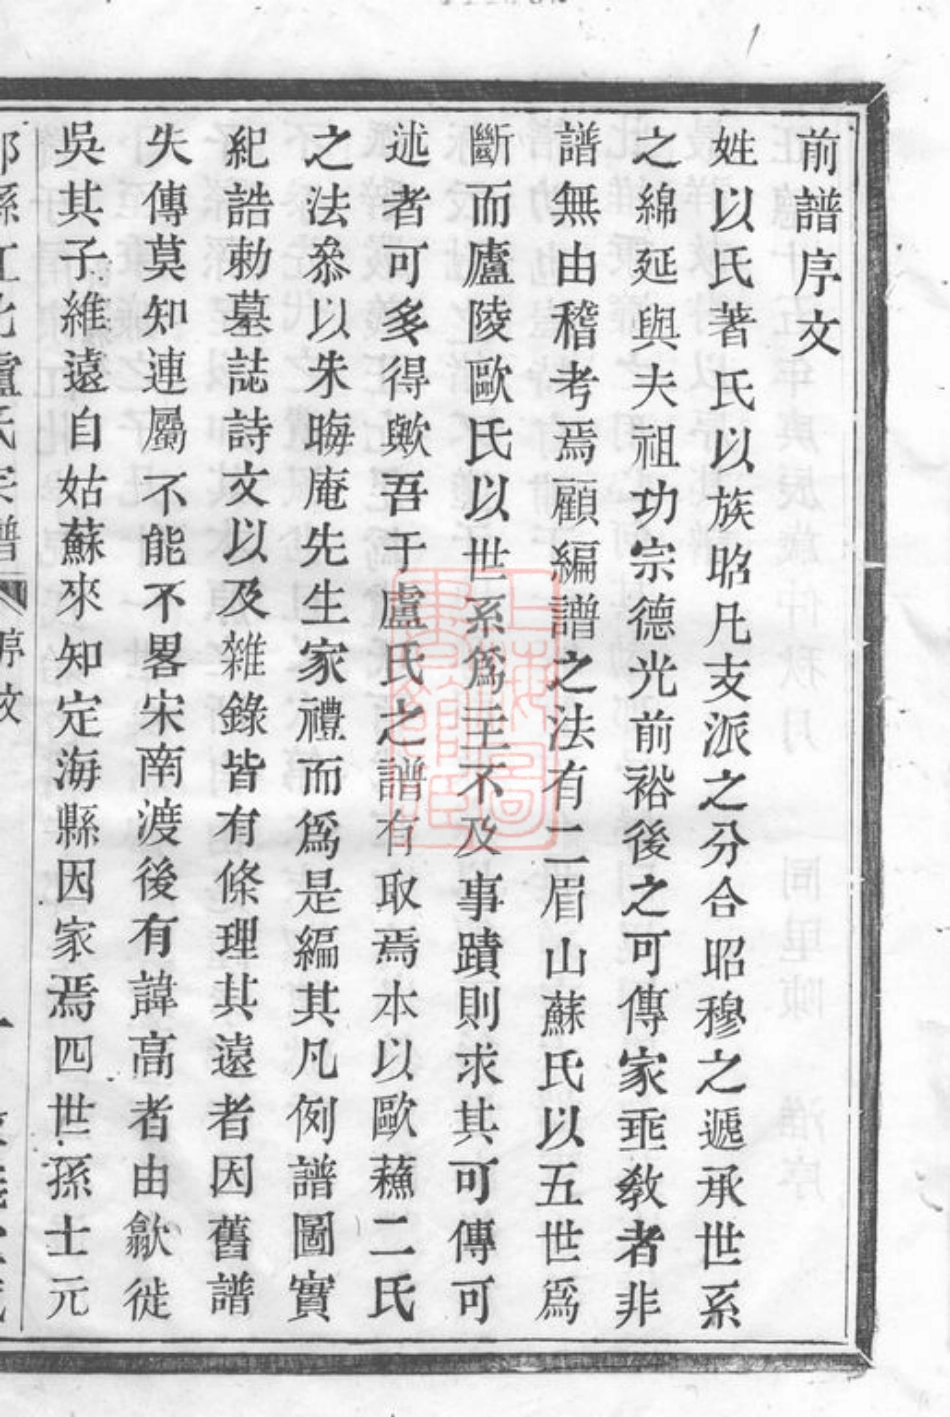 前譜序文
姓以氏著氏以族昭凡支派之分合昭穆之遞承世系
之綿延與夫祖功宗德光前裕後之可傳家垂敎者非
譜無由稽考焉顧編譜之法有二眉山蘇氏以五世爲
斷而廬陵歐氏以世系爲主不及事蹟則求其可傳可
述者可多得歟吾于盧氏之譜有取焉本以歐蘓二氏
之法叅以朱晦庵先生家禮而爲是編其凡例譜圖實
紀誥勅墓誌詩文以及雜錄皆有條理其遠者因舊譜
失傳莫知連屬不能不畧宋南渡後有諱高者由歙徙
吳其子維遠自姑蘇來知定海縣因家焉四世孫士元
江北盧氏宗譜